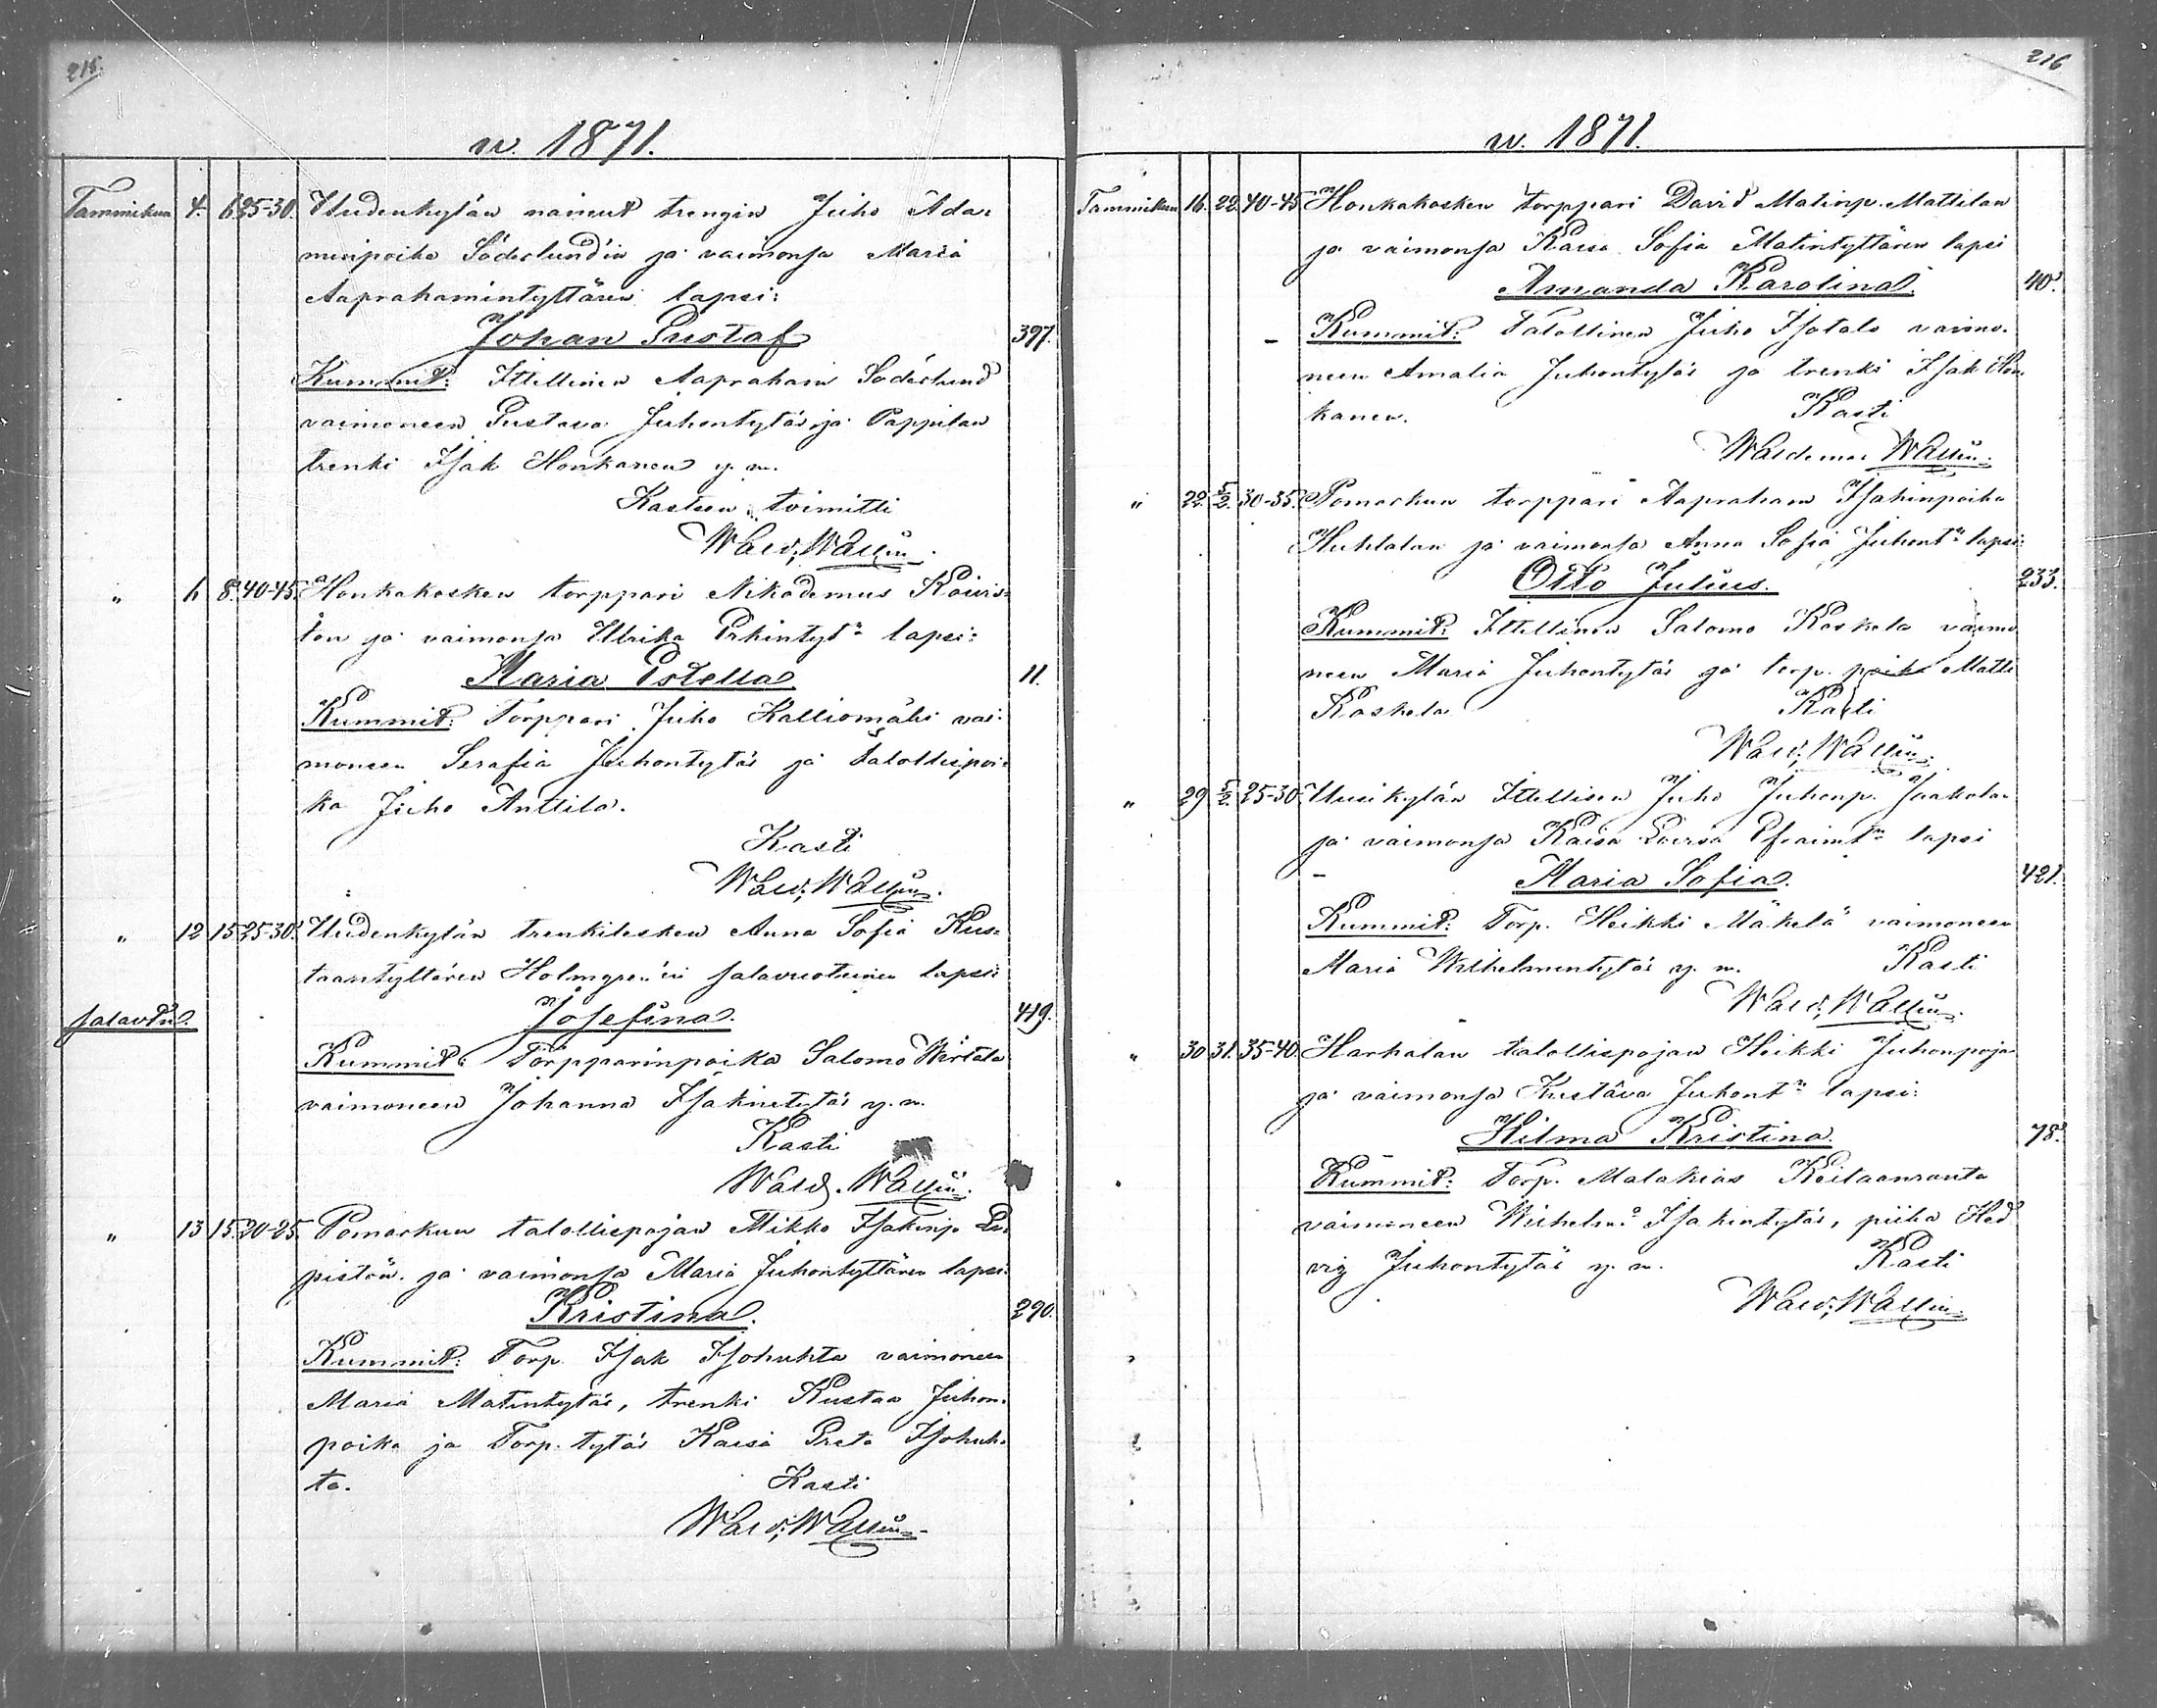 215.
w. 1871.
Tammikuu 4. 6. 25-30. Uudenkylän nainut trengin Juho Ada-
minpoika Söderlund'in ja vaimonsa Maria
Aaprahamintyttären lapsi:
Johan Gustaf 397.
Kummit: Itellinen Aapraham Söderlund
vaimoneen Gustava Juhontytär ja Pappilan
trenki Isak Honkanen y. m.
Kasteen toimitti
Wald. Wallin.
" 6 8. 40-45. Honkakosken torppari Nikodemus Koivis-
ton ja vaimonsa Ulrika Erkintyt:n lapsi:
Maria Estella 11.
Kummit: Torppari Juho Kalliomäki vai-
moneen Serafia Juhontytär ja talollispoi-
ka Juho Anttila.
Kasti
Wald. Wallin.
" 12 15. 25-30. Uudenkylän trenkilesken Anna Sofia Kus-
taantyttären Holmgren'in salavuoteinen lapsi:
salavu. Josefina. 419.
Kummit: Torpparinpoika Salomo Wärtala
vaimoneen Johanna Isakintytär y. m.
Kasti
Wald. Wallin.
" 13 15. 20-25. Pomarkun talollispojan Mikko Isakinp.
pistön ja vaimonsa Maria Juhontyttären lapsi:
Kristina. 290.
Kummit: Torp. Isak Isohuhta vaimoneen
Maria Matintytär, trenki Kustaa Juhon-
poika ja Torp. tytär Kaisa Greta Isohuh-
ta. Kasti
Wald. Wallin.
216
w. 1871.
Tammikuu 16. 22. 40-45 Honkakosken torppari David Matinp. Mattilan
ja vaimonsa Kaisa Sofia Matintyttären lapsi
Amanda Karolina. 40.
Kummit: Talollinen Juho Isotalo vaimo-
neen Amalia Juhontytär ja trenki Isak Hon-
kanen. Kasti
Waldemar Wallin.
" 22. 5/2. 30-35. Pomarkun torppari Aapraham Isakinpoika
Huhtalan ja vaimonsa Anna Sofia Juhont:n lapsi:
Otto Julius. 233.
Kummit: Itellinen Salomo Koskela vaimo
neen Maria Juhontytär ja torp. poika Matti
Koskela Kasti
Wald. Wallin.
" 29 5/2. 25-30. Uusikylän Itellisen Juho Juhonp. Jaakola-
ja vaimonsa Kaisa Loviisa Efraimt:n lapsi
Maria Sofia. 421.
Kummit: Torp. Heikki Mäkelä vaimoneen
Maria Wilhelmentytär y. m. Kasti
Wald. Wallin.
" 30 31. 35-40. Harhalan talollispojan Heikki Juhonpoja
ja vaimonsa Kustäva Juhont:n lapsi:
Hilma Kristina. 78.
Kummit: Torp. Malakias Keitaanranta
vaimoneen Wilhelm:a Isakintytär, piika Hed
vig Juhontytär y. m. Kasti
Wald. Wallin.